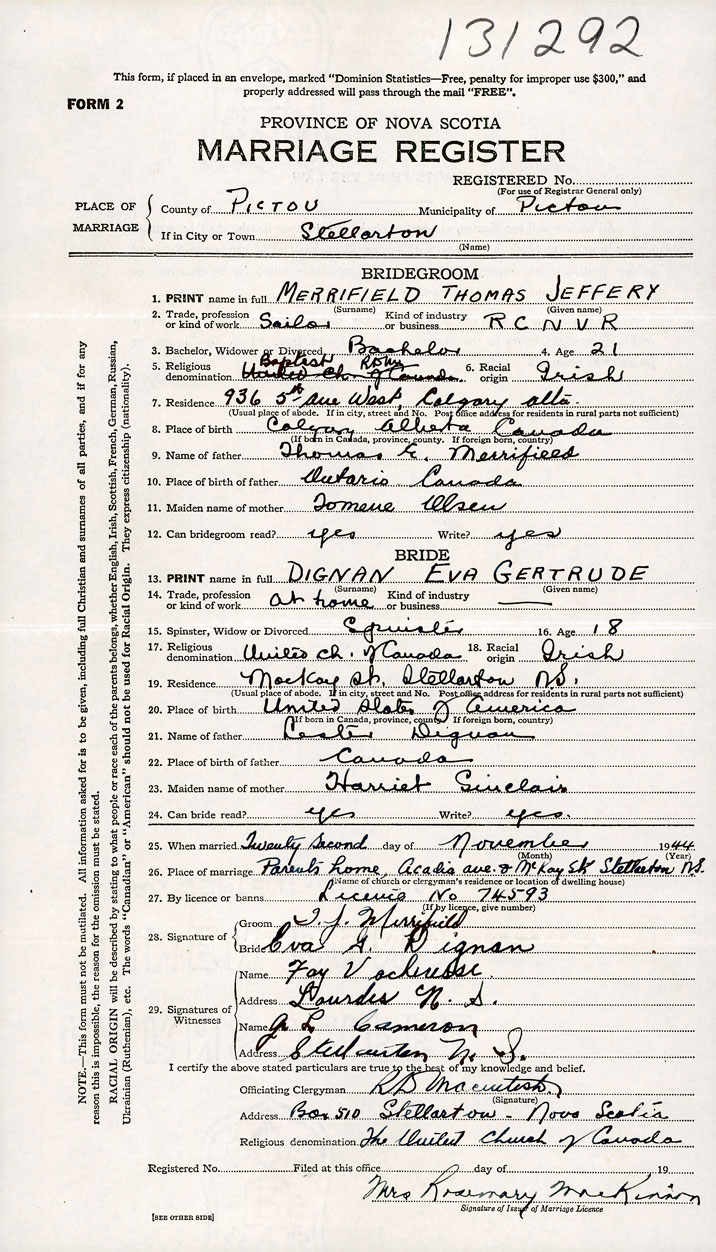 131292
This form, if placed in an envelope, marked "Dominion Statistics—Free, penalty for improper use $300," and
properly addressed will pass through the mail "FREE".
FORM 2
PROVINCE OF NOVA SCOTIA
MARRIAGE REGISTER
REGISTERED No.
(For use of Registrar General only)
PLACE OF MARRIAGE
County of PICTOU Municipality of Pictou
If in City or Town Stellarton
(Name)
BRIDEGROOM
1. PRINT name in full MERRIFIELD THOMAS JEFFERY
(Surname) (Given name)
2. Trade, profession or kind of work Sailor Kind of industry or business R C N V R
3. Bachelor, Widower or Divorced Bachelor 4. Age 21
5. Religious denomination United Ch. of Canada Baptist 6. Racial origin Irish
7. Residence 936 5th Ave West, Calgary Alta.
(Usual place of abode. If in city, street and No. Post office address for residents in rural parts not sufficient)
8. Place of birth Calgary Alberta Canada
(If born in Canada, province, county. If foreign born, country)
9. Name of father Thomas E. Merrifield
10. Place of birth of father Ontario Canada
11. Maiden name of mother Tomene Olsen
12. Can bridegroom read? yes Write? yes
BRIDE
13. PRINT name in full DIGNAN EVA GERTRUDE
(Surname) (Given name)
14. Trade, profession or kind of work at home Kind of industry or business —
15. Spinster, Widow or Divorced Spinster 16. Age 18
17. Religious denomination United Ch. of Canada 18. Racial origin Irish
19. Residence MacKay St. Stellarton N.S.
(Usual place of abode. If in city, street and No. Post office address for residents in rural parts not sufficient)
20. Place of birth United States of America
(If born in Canada, province, county. If foreign born, country)
21. Name of father Lester Dignan
22. Place of birth of father Canada
23. Maiden name of mother Harriet Sinclair
24. Can bride read? yes Write? yes.
25. When married Twenty Second day of November 1944
(Month) (Year)
26. Place of marriage Parents home, Acadia ave. & McKay St. Stellarton N.S.
(Name of church or clergyman's residence or location of dwelling house)
27. By licence or banns Licence No 74593
(If by licence, give number)
28. Signature of
Groom T. J. Merrifield
Bride Eva G. Dignan
29. Signatures of Witnesses
Name Fay
Address Lourdes N. S.
Name L Cameron
Address Stellarton N. S.
I certify the above stated particulars are true to the best of my knowledge and belief.
Officiating Clergyman R D Macintosh
(Signature)
Address Box 510 Stellarton - Nova Scotia
Religious denomination The United Church of Canada
Registered No. Filed at this office day of 19
Mrs Rosemary MacKinnon
Signature of Issuer of Marriage Licence
[SEE OTHER SIDE]
NOTE.—This form must not be mutilated. All information asked for is to be given, including full Christian and surnames of all parties, and if for any
reason this is impossible, the reason for the omission must be stated.
RACIAL ORIGIN will be described by stating to what people or race each of the parents belongs, whether English, Irish, Scottish, French, German, Russian,
Ukrainian (Ruthenian), etc. The words "Canadian" or "American" should not be used for Racial Origin. They express citizenship (nationality).